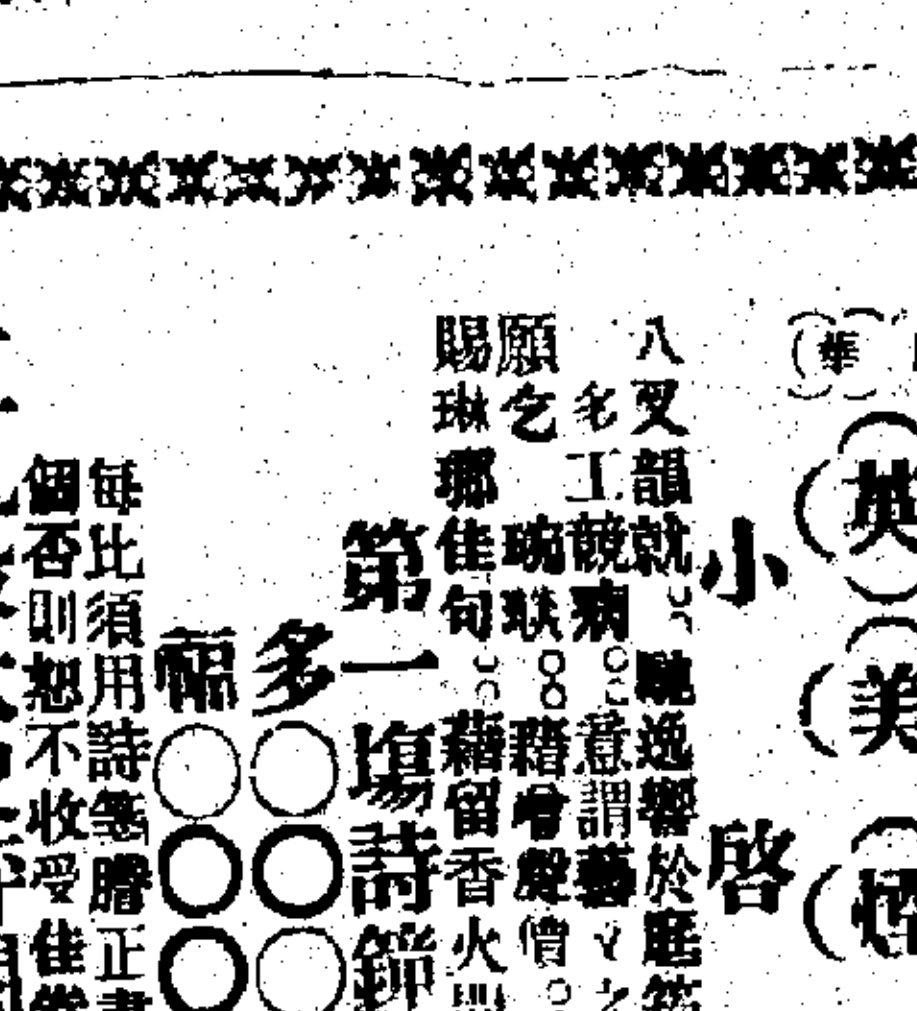 華
英美煙
小啓
八叉韻就馳逸響於庭筠
多工競病意謂藝文之
願乞琬琰藉增聲價
賜琳瑯佳句藉留香火
第一塲詩鐘
多
福
每比須用詩箋謄正書
個否則恕不收受佳卷